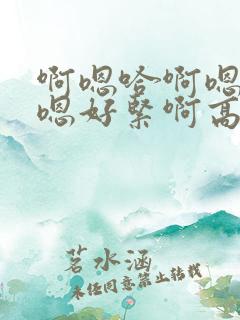 啊嗯哈啊嗯
嗯好紧啊高
茗水涵
未经同意禁止转载